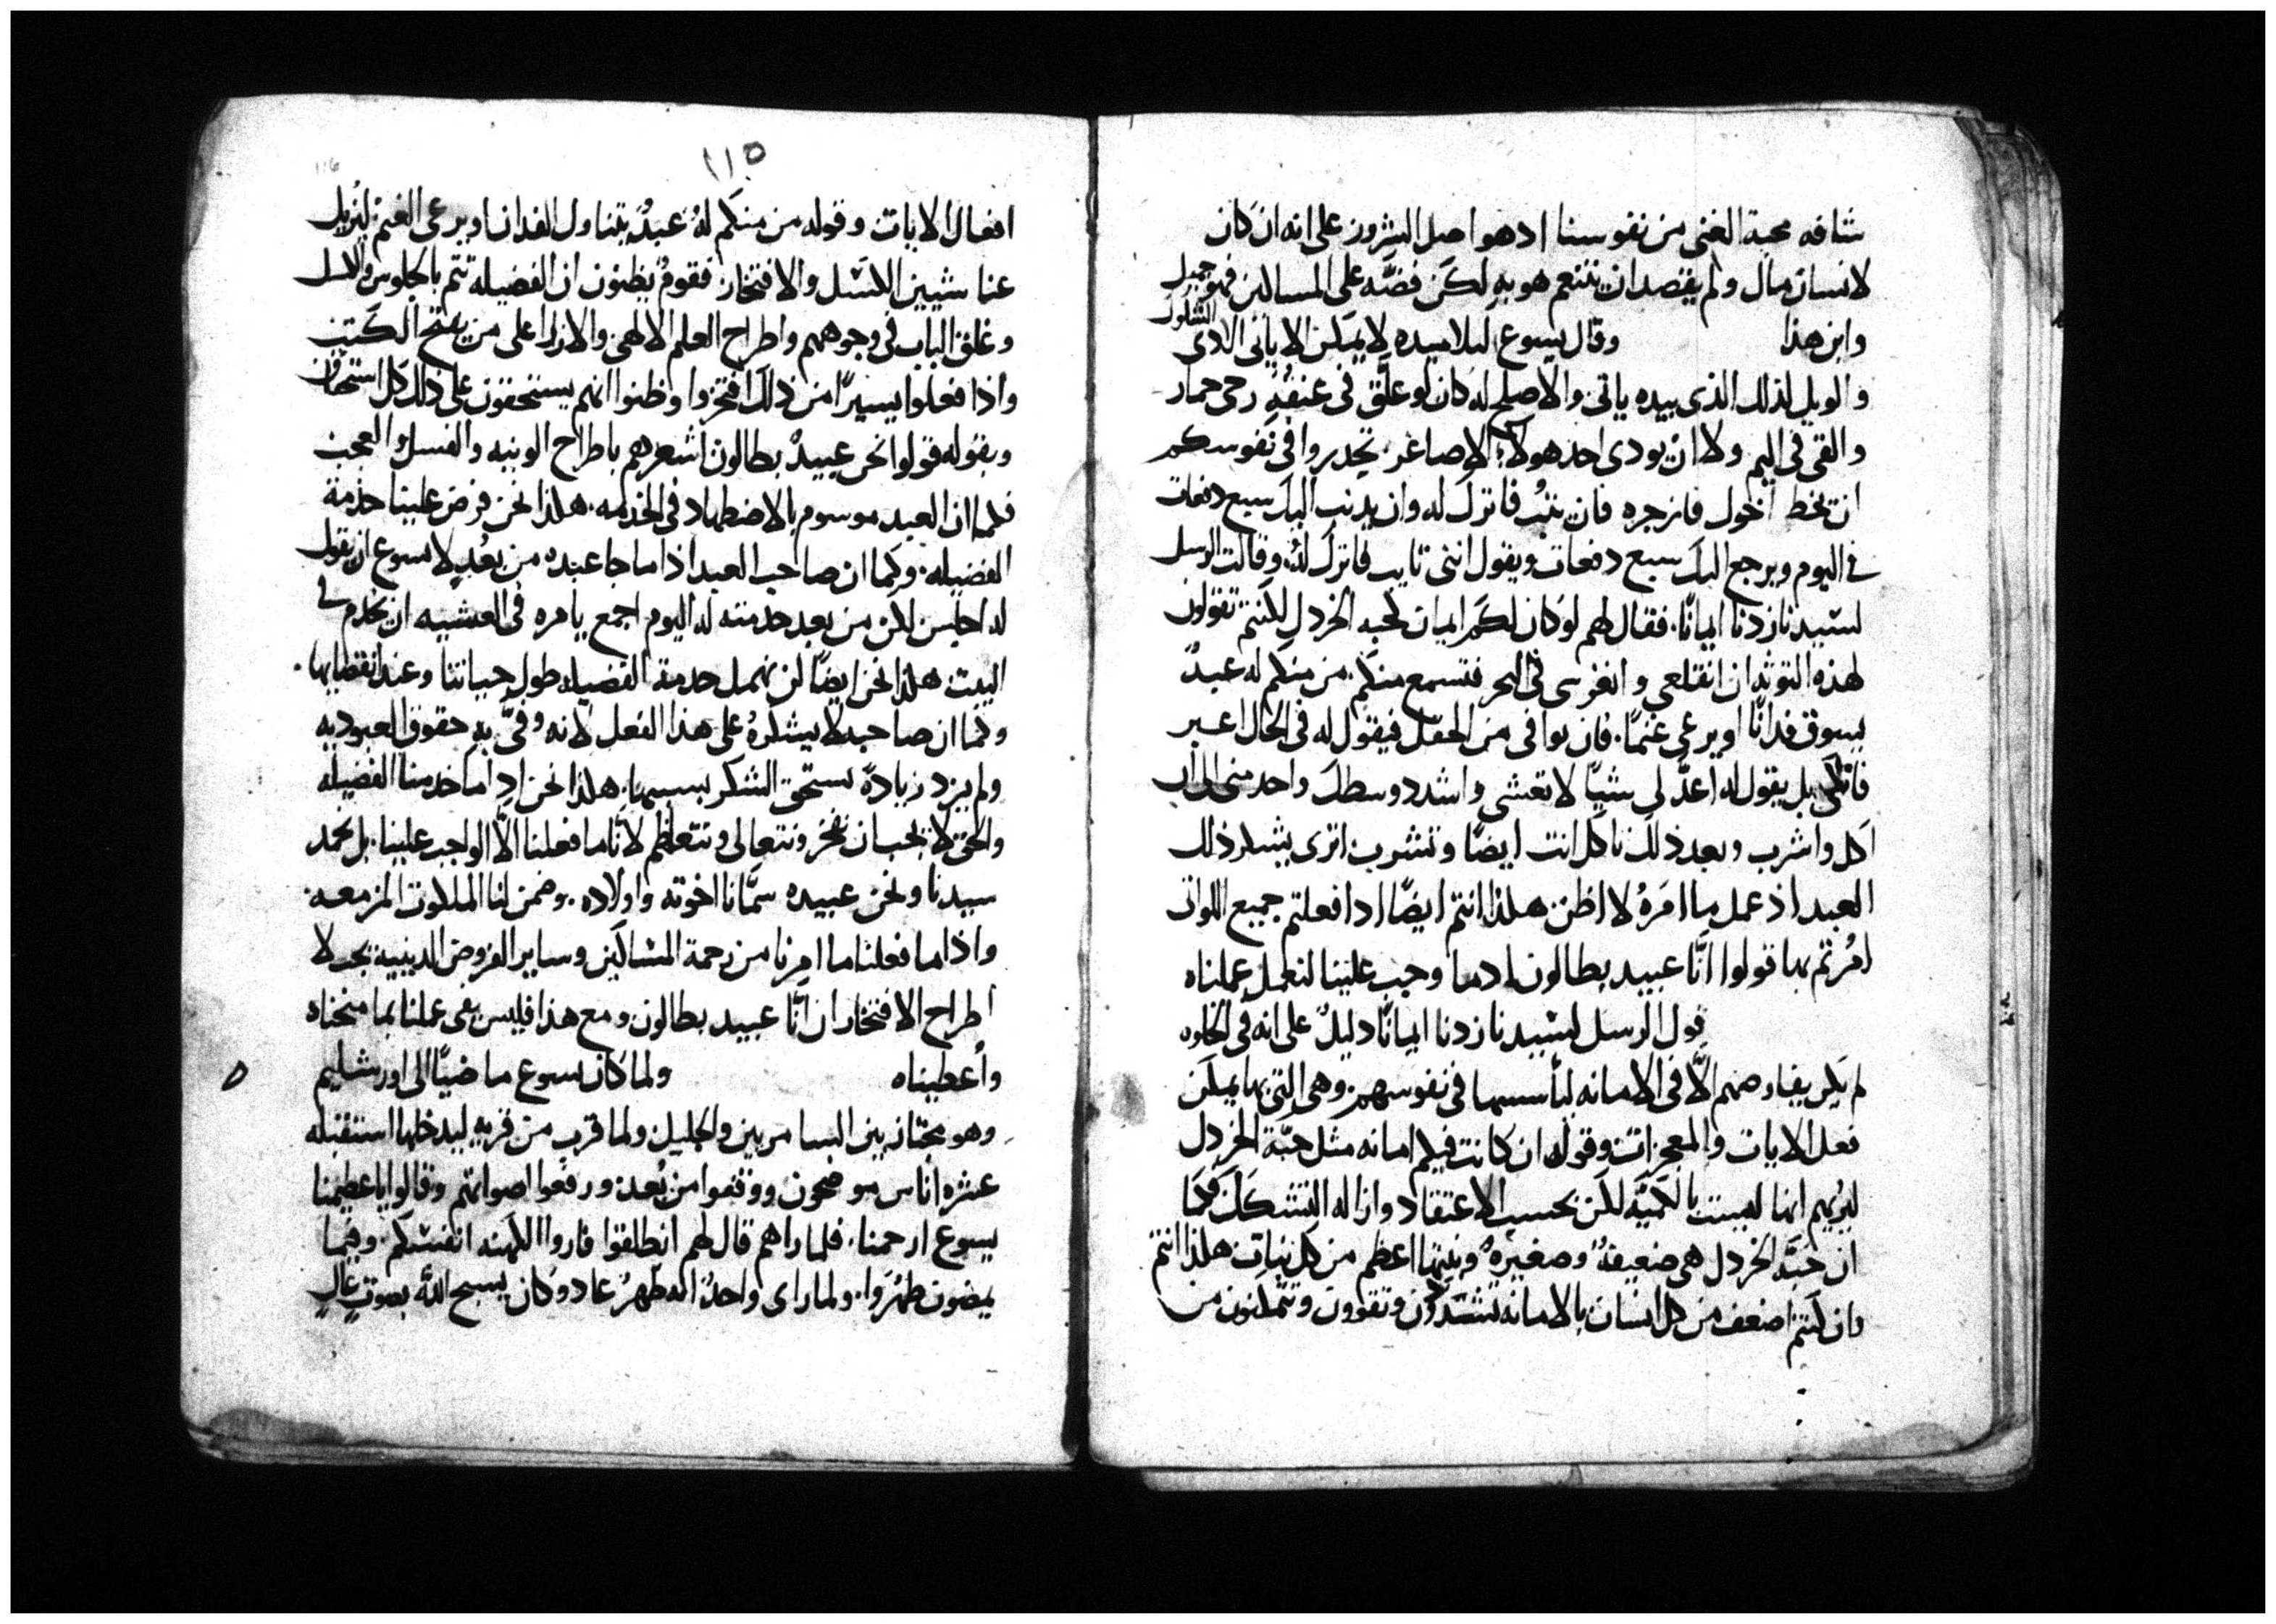 شافه محبة الغنى من نفوسنا اذ هو اصل الشرور على انه ان كان
لانسان مال ولم يقصد ان يتنعم هو به لكن فضه على المساكين فهو جميل
وابن هذا وقال يسوع لتلاميده لا يمكن الا ياتى الادى
الشكوك
والويل لذلك الذى بيده ياتى والاصلح له كان لو علق فى عنقه رحى حمار
والقى فى اليم ولا ان يودى احد هولاء الاصاغر تحدروا فى نفوسكم
ان يخط اخوك فازجره فان يتب فاترك له وان يدنب اليك سبع دفعات
فى اليوم ويرجع اليك سبع دفعات ويقول اننى تايب فاترك له وقالت الرسل
لسيدنا زدنا ايمانًا فقال لهم لو كان لكم ايمان كحبه الخردل لكنتم تقولون
لهذه التوثه ان انقلعى وانغرسى فى البحر فتسمع منكم من منكم له عبدٌ
يسوق فدانًا او يرعى غنمًا فان يوافى من الحقل فيقول له فى الحال اعبر
فاتكى بل يقول له اعد لى شيًا لاتعشى واشدد وسطك واخدمنى الى ان
اكل واشرب وبعد ذلك تاكل انت ايضًا وتشرب اترى يشكر ذلك
العبد اذ عمل ما امره لا اظن هكذا انتم ايضًا ادا فعلتم جميع اللواتى
امرتم بها قولوا انّا عبيد بطالون ادما وجب علينا لنعمل عملناه
قول الرسل لسيدنا زدنا ايمانًا دليلٌ على انه فى الخلوه
لم يكن يفاوضهم الّا فى الامانه ليأسسها فى نفوسهم وهى التى بها يمكن
فعل الايات والمعجزات وقوله ان كانت فيكم امانه مثل حبّة الخردل
ليريهم انها ليست بالكميّه لكن بحسب الاعتقاد وازاله التشكك فكما
ان حبّة الخردل هى ضعيفةٌ وصغيرةٌ ونبتها اعظم من كل نبات هكذا انتم
وان كنتم اضعف من كل انسان بالامانه تشتدون وتقوون وتتمكنون من
١١٥
116
افعال الايات وقوله من منكم له عبدٌ يتناول الفدان او يرعى الغنم ليزيل
عنا شيين الكسل والافتخار فقومٌ يظنون ان الفضيله تتم بالجلوس والكسل
وغلق الباب فى وجوههم واطراح العلم الالهى والازرا على من يفتح الكتب
واذا فعلوا يسيرًا من ذلك افتخروا وظنوا انهم يستحقون على ذلك كل استحقاق
وبقوله قولوا نحن عبيدٌ بطالون اشعرهم باطراح الونيه والفسل والعجب
فكما ان العبد موسوم بالاضطهاد فى الخدمه هكذا نحن فرض علينا خدمة
الفضيله وكما ان صاحب العبد اذا ما جا عبده من بعد لا يسوع ان يقول
له اجلس لكن من بعد خدمته له اليوم اجمع يامره فى العشيه ان يخدم فى
البيت هكذا نحن ايضًا لن نهمل خدمة الفضيله طول حياتنا وعند انقضايها
وكما ان صاحبه لا يشكره على هذا الفعل لانه وفّى به حقوق العبوديه
ولم يزد زيادةً يستحق الشكر بسببها هكذا نحن اذا ما خدمنا الفضيله
والحق لا يجب ان نفخر ونتعالى ونتعاظم لانّا ما فعلنا الّا الواجب علينا بل نحمد
سيدنا ونحن عبيده سمّانا اخوته واولاده وضمن لنا الملكوت المزمعه
واذا ما فعلنا ما امرنا من رحمة المساكين وساير الفروض الدينيه يجب لا
اطراح الافتخار ان انّا عبيد بطالون ومع هذا فليس يفى عملنا بما منحناه
وأعطيناه ولما كان يسوع ماضيًا الى اورشليم
وهو مجتاز بين السامريين والجليل ولما قرب من قريه ليدخلها استقبله
عشره اناس موضحون ووقفوا من بُعد ورفعوا اصواتهم وقالوا يا عظيمنا
يسوع ارحمنا فلما راهم قال لهم انطلقوا فاروا الكهنه انفسكم وفيما
يمضون طهروا ولما راى واحدٌ انه طهر عاد وكان يسبح الله بصوتٍ عالٍ